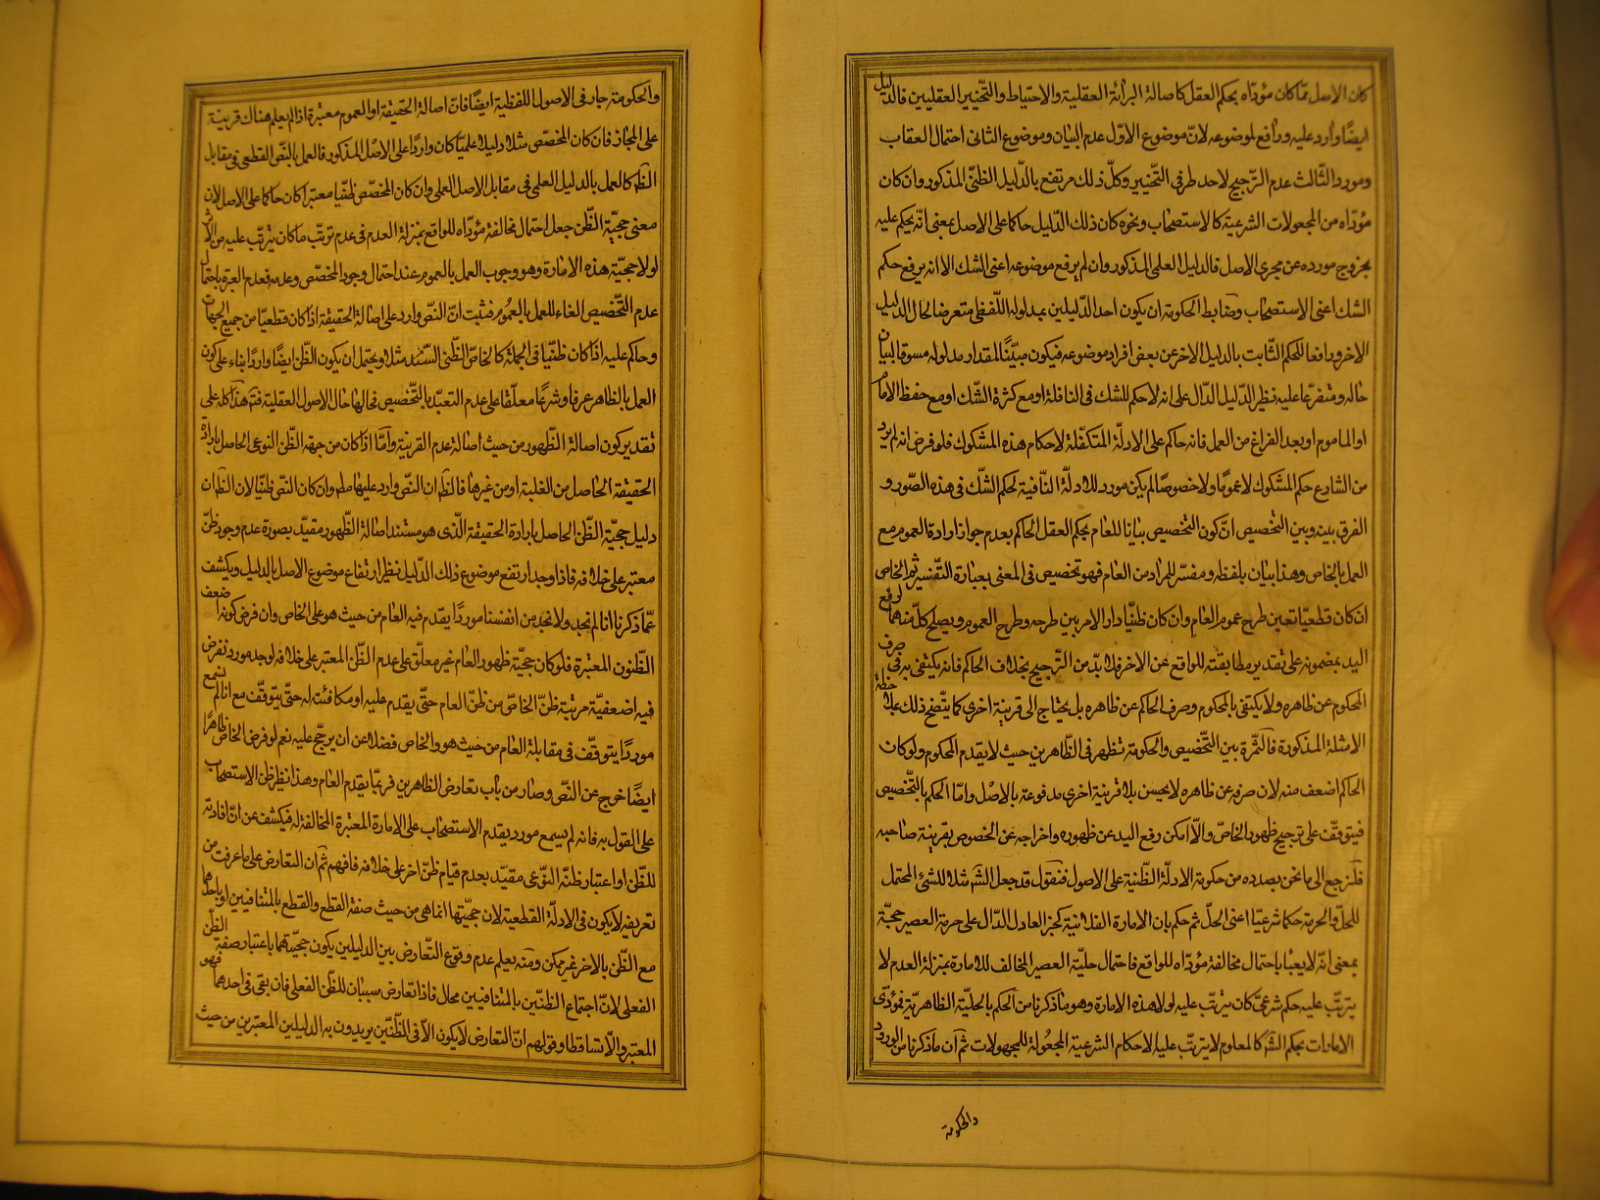 كان الاصل مما كان مؤداه بحكم العقل كاصالة البرائة العقلية والاحتياط والتخيير العقليين فالدليل
ايضا وارد عليه ورافع لموضوعه لان موضوع الاول عدم البيان وموضوع الثانى احتمال العقاب
ومورد الثالث عدم الترجيح لاحد طرفى التخيير وكل ذلك مرتفع بالدليل الظنى المذكور وان كان
مؤداه من المجعولات الشرعية كالاستصحاب ونحوه كان ذلك الدليل حاكما على الاصل بمعنى انه يحكم عليه
بخروج مورده عن مجرى الاصل فالدليل العلمى المذكور وان لم يرفع موضوعه اعنى الشك الا انه يرفع حكم
الشك اعنى الاستصحاب وضابط الحكومة ان يكون احد الدليلين بمدلوله اللفظى متعرضا لحال الدليل
الاخر ورافعا للحكم الثابت بالدليل الاخر عن بعض افراد موضوعه فيكون مبينا لمقدار مدلوله مسوقا لبيان
حاله ومتفرعا عليه نظير الدليل الدال على انه لا حكم للشك فى النافلة او مع كثرة الشك او مع حفظ الامام
او الماموم او بعد الفراغ من العمل فانه حاكم على الادلة المتكفلة لاحكام هذه المشكوك فلو فرض انه لم يرد
من الشارع حكم المشكوك لا عموما ولا خصوصا لم يكن مورد للادلة النافية لحكم الشك فى هذه الصور و
الفرق بينه وبين التخصيص ان كون التخصيص بيانا للعام بحكم العقل الحاكم بعدم جواز ارادة العموم مع
العمل بالخاص وهذا بيان بلفظه ومفسر للمراد من العام فهو تخصيص فى المعنى بعبارة التفسير ثم الخاص
ان كان قطعيا تعين طرح عموم العام وان كان ظنيا دار الامر بين طرحه وطرح العموم ويصلح كل منهما لرفع
اليد بمضمونه على تقدير مطابقته للواقع عن الاخر فلا بد من الترجيح بخلاف الحاكم فانه يكتفى به فى صرف
المحكوم عن ظاهره ولا يكتفى بالمحكوم وصرف الحاكم عن ظاهره بل يحتاج الى قرينة اخرى كما يتضح ذلك بملاحظة
الامثلة المذكورة فالثمرة بين التخصيص والحكومة تظهر فى الظاهرين حيث لا يقدم المحكوم ولو كان
الحاكم اضعف منه لان صرفه عن ظاهره لا يحسن بلا قرينة اخرى مدفوعة بالاصل واما الحكم بالتخصيص
فيتوقف على ترجيح ظهور الخاص والا امكن رفع اليد عن ظهوره واخراجه عن الخصوص بقرينة صاحبه
فلنرجع الى ما نحن بصدده من حكومة الادلة الظنية على الاصول فنقول قد جعل الشم مثلا للشئ المحتمل
للحل والحرمة حكما شرعيا اعنى الحل ثم حكم بان الامارة الفلانية كخبر العادل الدال على حرمة العصير حجة
بمعنى انه لا يعبا باحتمال مخالفة مؤداه للواقع فاحتمال حلية العصير المخالف للامارة بمنزلة العدم لا
يترتب عليه حكم شرعى كان يترتب عليه لولا هذه الامارة وهو ما ذكرنا من الحكم بالحلية الظاهرية فمؤدى
الامارات بحكم الشم كالمعلوم لا يترتب عليها الاحكام الشرعية المجعولة للمجهولات ثم ان ما ذكرنا من الورود
والحكومة
والحكومة جار فى الاصول اللفظية ايضا فان اصالة الحقيقة او العموم معتبرة اذا لم يعلم هناك قرينة
على المجاز فان كان المخصص مثلا دليلا علميا كان واردا على الاصل المذكور فالعمل بالنص القطعى فى مقابل
الظ كالعمل بالدليل العلمى فى مقابل الاصل العملى وان كان المخصص ظنيا معتبرا كان حاكما على الاصل لان
معنى حجية الظن جعل احتمال مخالفة مؤداه للواقع بمنزلة العدم فى عدم ترتب ما كان يترتب عليه من الاثر
لولا حجية هذه الامارة وهو وجوب العمل بالعموم عند احتمال وجود المخصص وعدمه فعدم العبرة باحتمال
عدم التخصيص الغاء للعمل بالعموم فثبت ان النص وارد على اصالة الحقيقة اذا كان قطعيا من جميع الجهات
وحاكم عليه اذا كان ظنيا فى الجملة كالخاص الظنى السند مثلا ويحتمل ان يكون الظن ايضا واردا بناء على كون
العمل بالظاهر عرفا وشرعا معلقا على عدم التعبد بالتخصيص فحالها حال الاصول العقلية فتم هذا كله على
تقدير كون اصالة الظهور من حيث اصالة عدم القرينة واما اذا كان من جهة الظن النوعى الحاصل بارادة
الحقيقة الحاصل من الغلبة او من غيرها فالظ ان النص وارد عليها مطم وان كان النص ظنيا لان الظ ان
دليل حجية الظن الحاصل بارادة الحقيقة الذى هو مستند اصالة الظهور مقيد بصورة عدم وجود ظن
معتبر على خلافه فاذا وجد ارتفع موضوع ذلك الدليل نظير ارتفاع موضوع الاصل بالدليل ويكشف
عما ذكرنا انا لم نجد ولا نجد من انفسنا موردا يقدم فيه العام من حيث هو على الخاص وان فرض كونه اضعف
الظنون المعتبرة فلو كان حجية ظهور العام غير معلق على عدم الظن المعتبر على خلافه لوجد مورد نفرض
فيه اضعفية مرتبة ظن الخاص من ظن العام حتى يقدم عليه او مكافئته له حتى يتوقف مع انا لم نسمع
موردا يتوقف فى مقابلة العام من حيث هو والخاص فضلا عن ان يرجح عليه نعم لو فرض الخاص ظاهرا
ايضا خرج عن النص وصار من باب تعارض الظاهرين فربما يقدم العام وهذا نظير ظن الاستصحاب
على القول به فانه لم يسمع مورد يقدم الاستصحاب على الامارة المعتبرة المخالفة له فيكشف عن ان افادته
للظن او اعتبار ظنه النوعى مقيد بعدم قيام ظن اخر على خلافه فافهم ثم ان التعارض على ما عرفت من
تعريفه لا يكون فى الادلة القطعية لان حجيتها انما هى من حيث صفة القطع والقطع بالمتنافيين او باحدهما
مع الظن بالاخر غير ممكن ومنه يعلم عدم وقوع التعارض بين الدليلين يكون حجيتهما باعتبار صفة الظن
الفعلى لان اجتماع الظنين بالمتنافيين محال فاذا تعارض سببان للظن الفعلى فان بقى فى احدهما فهو
المعتبر والا تساقطا وقولهم ان التعارض لا يكون الا فى الظنين يريدون به الدليلين المعتبرين من حيث